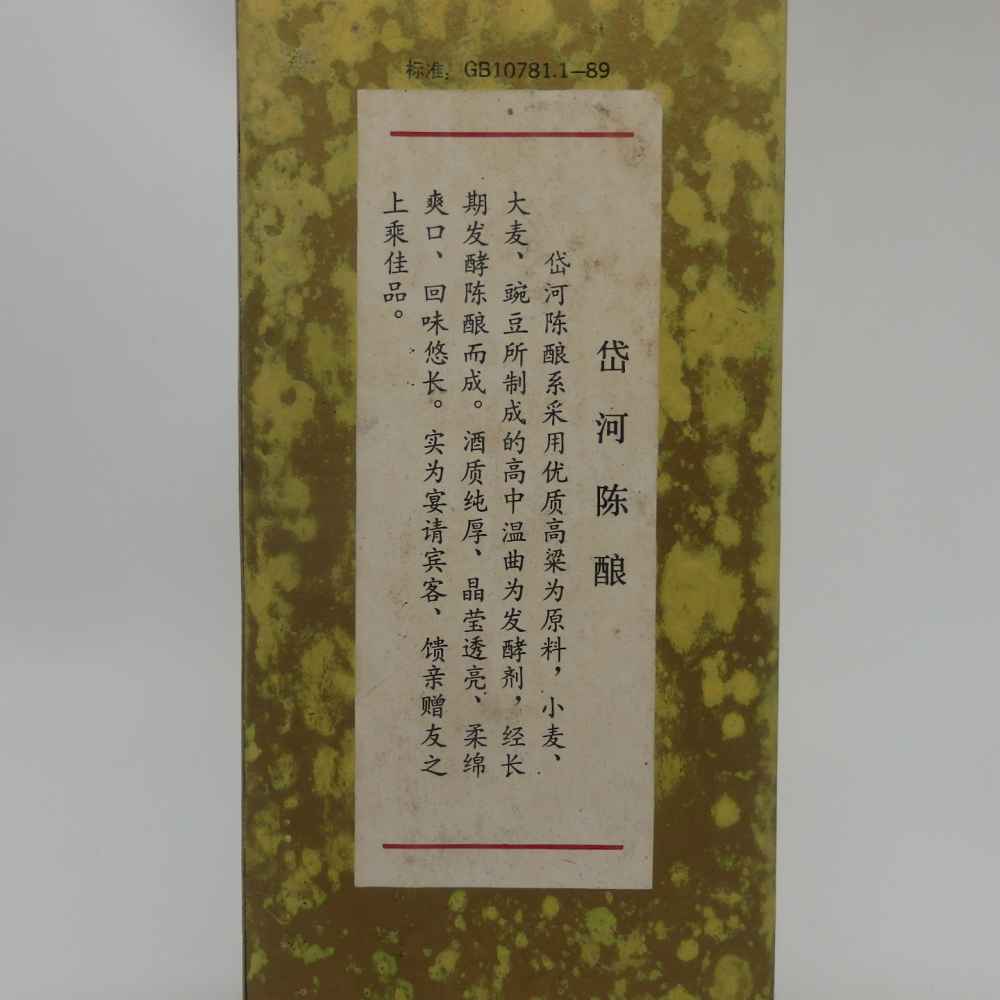 标准: GB10781.1—89
岱河陈酿
岱河陈酿系采用优质高粱为原料，小麦、
大麦、豌豆所制成的高中温曲为发酵剂，经长
期发酵陈酿而成。酒质纯厚、晶莹透亮、柔绵
爽口、回味悠长。实为宴请宾客、馈亲赠友之
上乘佳品。